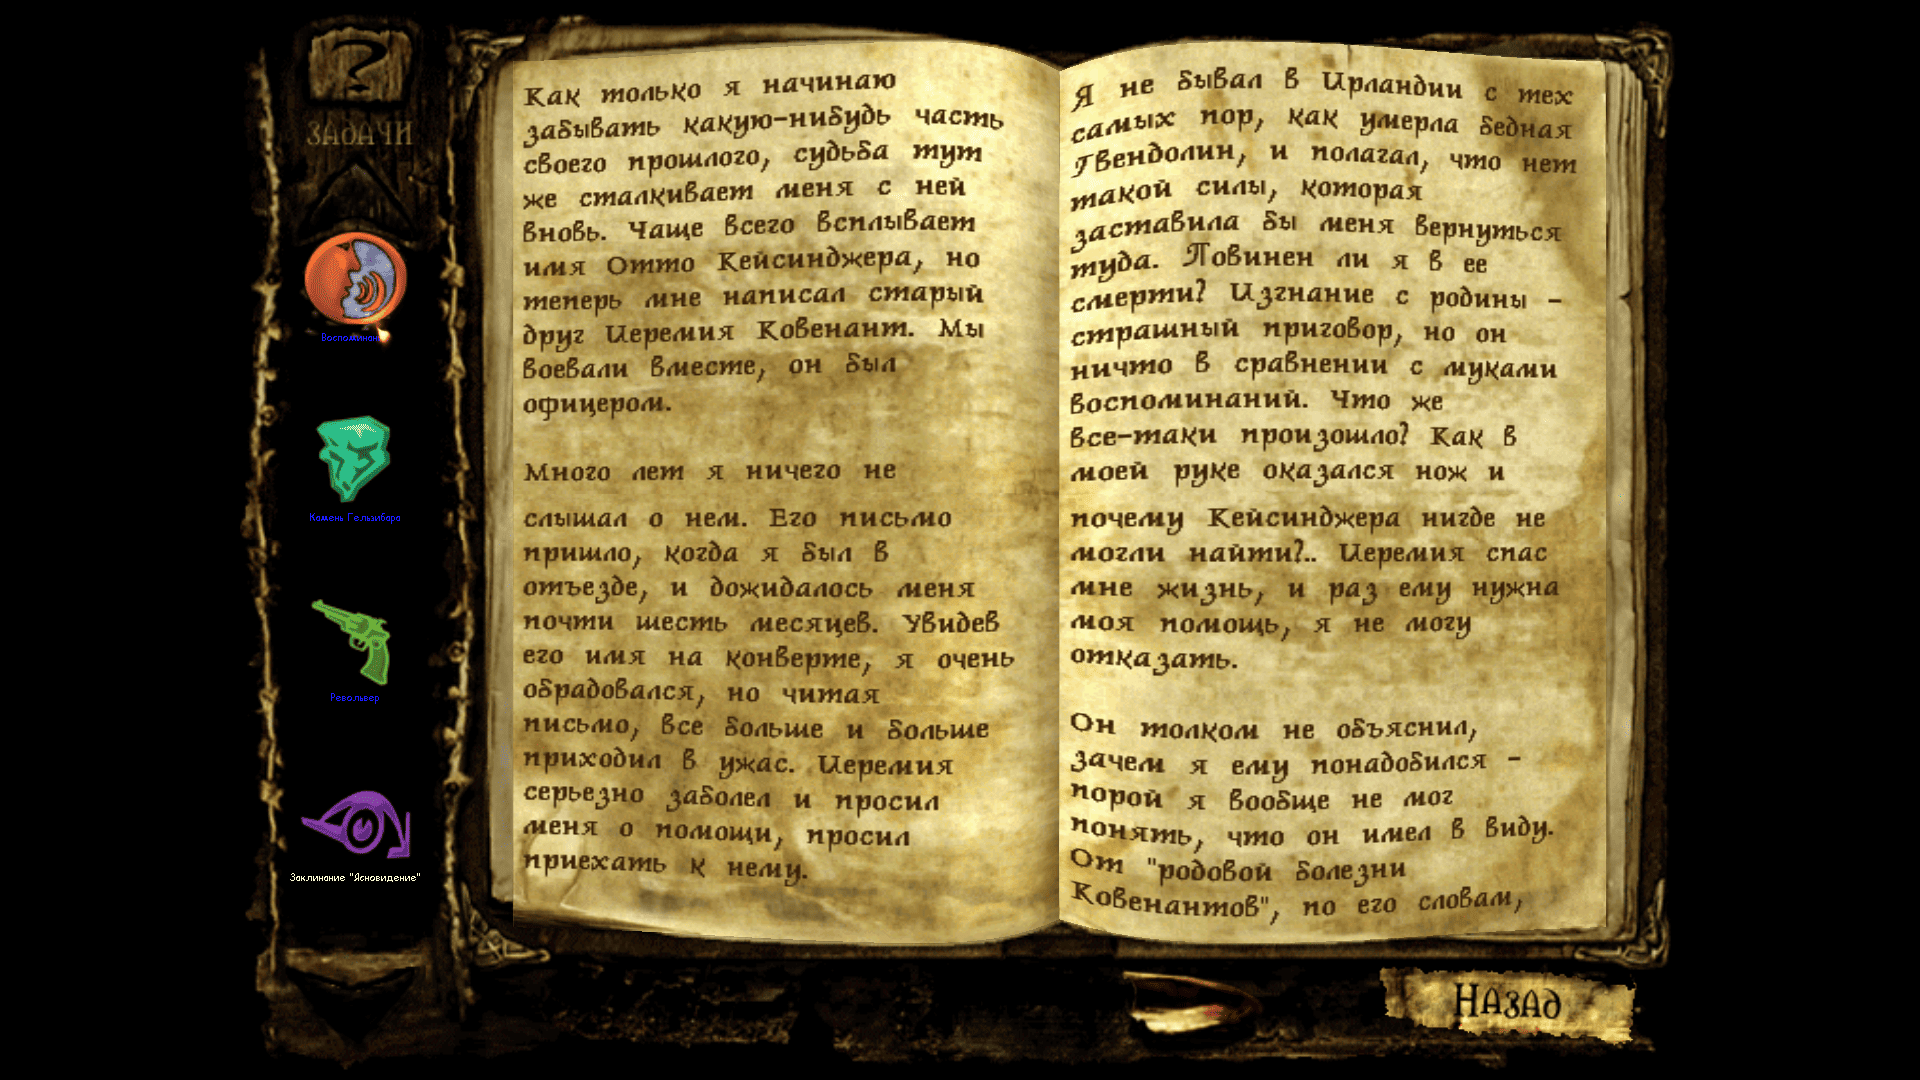 ?
ЗАДАЧИ
Воспоминан
Камень Гельзибара
Револьвер
Заклинание "Ясновидение"
Как только я начинаю
забывать какую-нибудь часть
своего прошлого, судьба тут
же сталкивает меня с ней
вновь. Чаще всего всплывает
имя Отто Кейсинджера, но
теперь мне написал старый
друг Иеремия Ковенант. Мы
воевали вместе, он был
офицером.
Много лет я ничего не
слышал о нем. Его письмо
пришло, когда я был в
отъезде, и дожидалось меня
почти шесть месяцев. Увидев
его имя на конверте, я очень
обрадовался, но читая
письмо, все больше и больше
приходил в ужас. Иеремия
серьезно заболел и просил
меня о помощи, просил
приехать к нему.
Я не бывал в Ирландии с тех
самых пор, как умерла бедная
Гвендолин, и полагал, что нет
такой силы, которая
заставила бы меня вернуться
туда. Повинен ли я в ее
смерти? Изгнание с родины -
страшный приговор, но он
ничто в сравнении с муками
воспоминаний. Что же
все-таки произошло? Как в
моей руке оказался нож и
почему Кейсинджера нигде не
могли найти?.. Иеремия спас
мне жизнь, и раз ему нужна
моя помощь, я не могу
отказать.
Он толком не объяснил,
зачем я ему понадобился -
порой я вообще не мог
понять, что он имел в виду.
От "родовой болезни
Ковенантов", по его словам,
НАЗАД